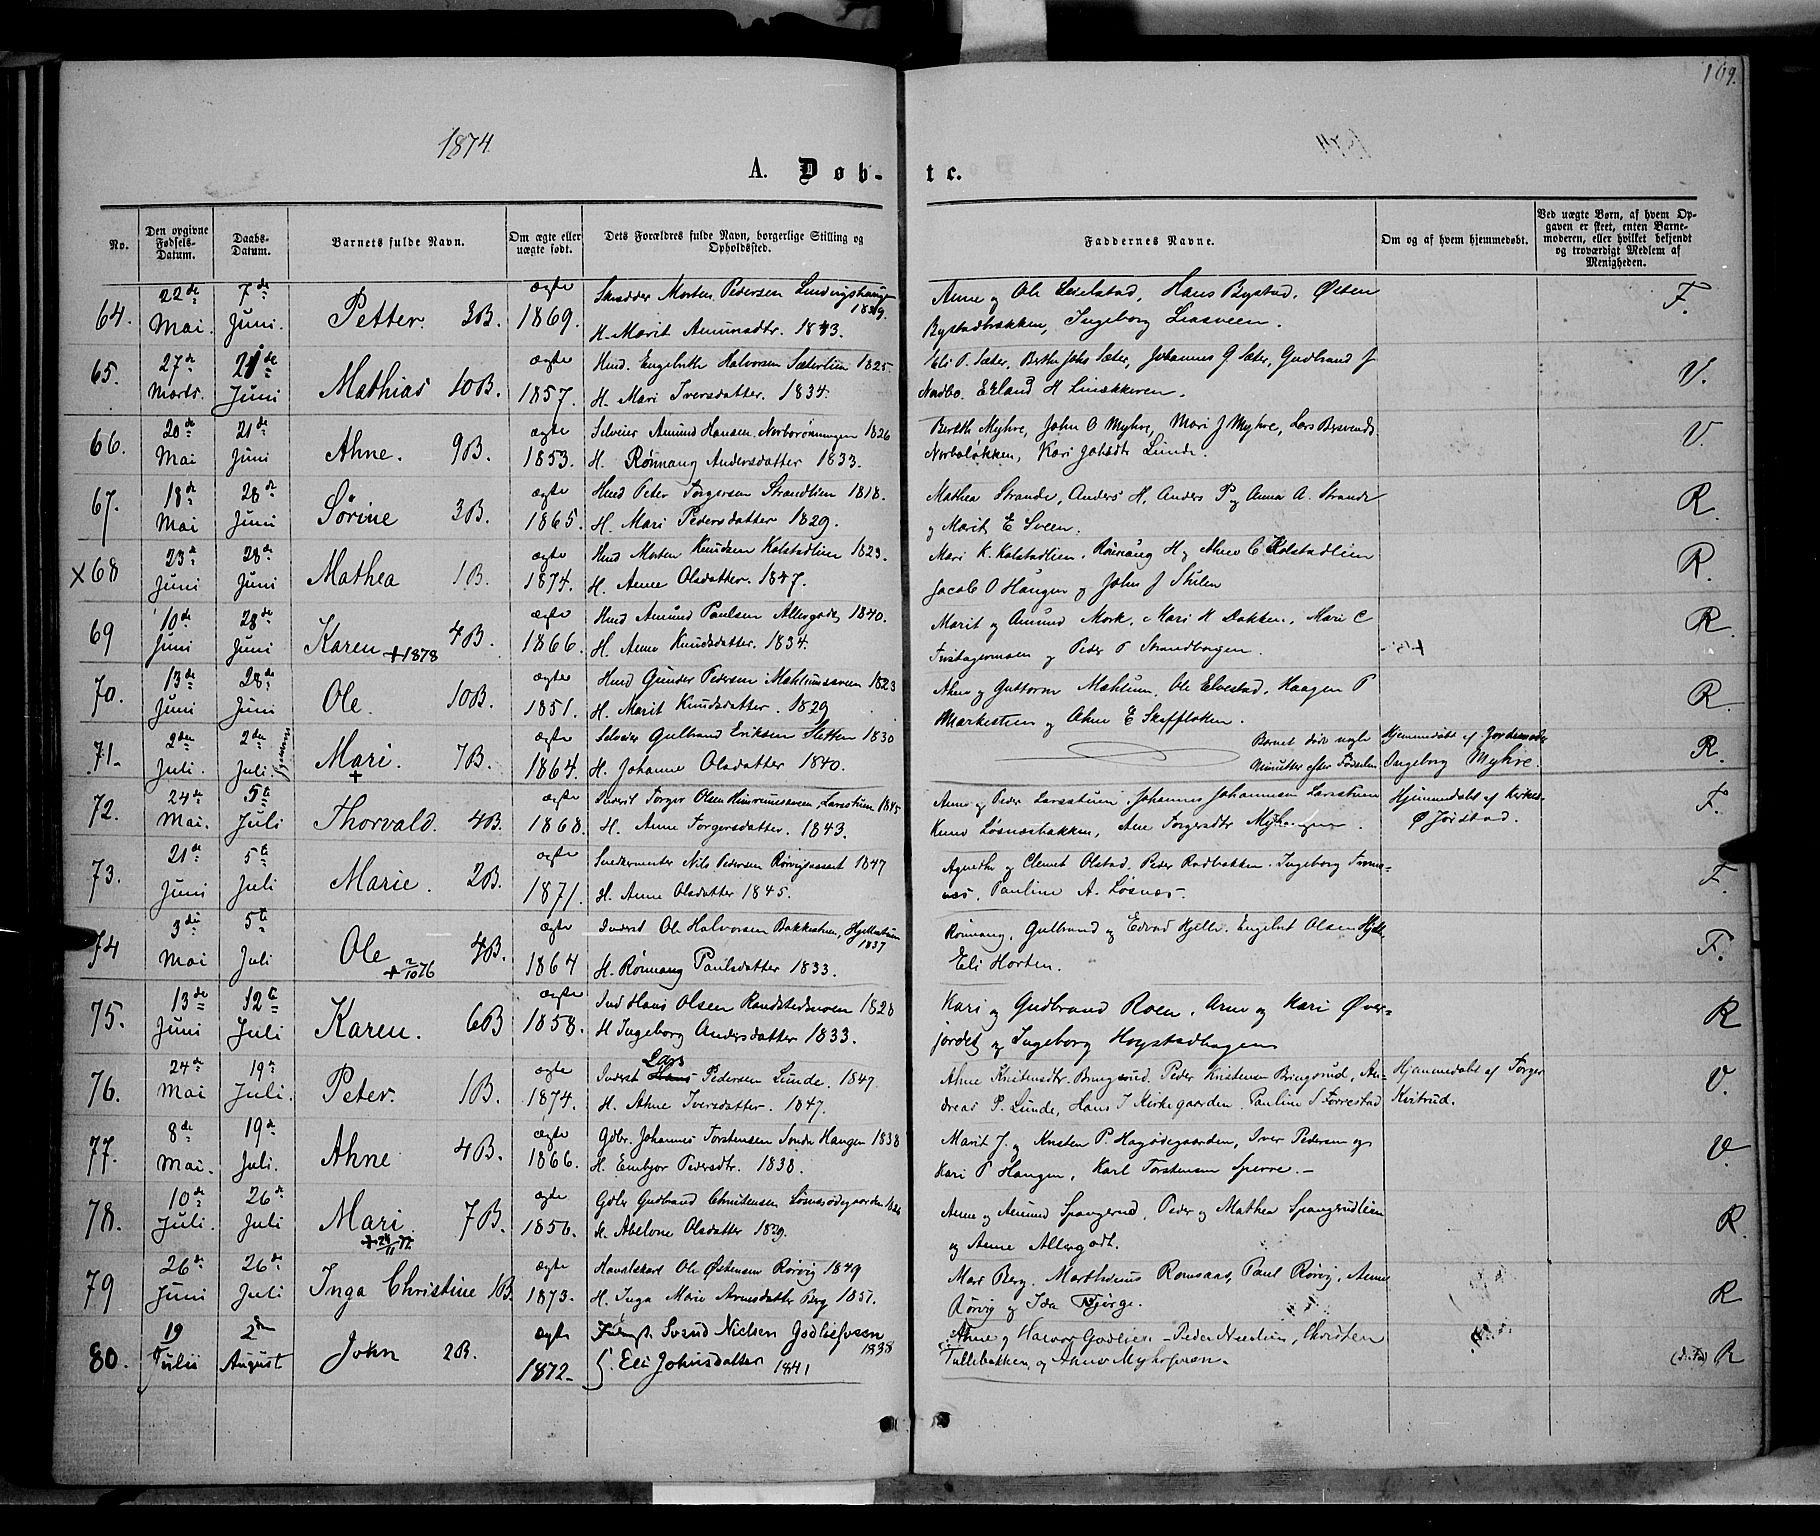 109.
1874
A. Døb-te.
No.
Den opgivne Fødsels-Datum.
Daabs-Datum.
Barnets fulde Navn.
Om ægte eller uægte født.
Dets Forældres fulde Navn, borgerlige Stilling og Opholdssted.
Faddernes Navne.
Om og af hvem hjemmedøbt.
Ved uægte Børn, af hvem Opgaven er skeet, enten Barnemoderen, eller hvilket bekjendt og troværdigt Medlem af Menigheden.
64. 22de Mai. 7de Juni. Petter. 3B. ægte 1869. Skrædder Morten Pedersen
H. Marit Amundsdtr. 1843.
Anne og Ole Hans Bystad, Østen
Bystadbakken, Ingeborg
F.
65. 27de Marts. 21de Juni Mathias 10B. ægte 1857. Husd. Engebreth Halvorsen Sæterlien 1825
H. Mari Iversdatter. 1834.
Eli P. Sæter, Berthe Johs Sæter, Johannes G. Sæter, Gudbrand J
Nordbo. Erland H
V.
66. 20de Mai 21de Juni Ahne. 9B. ægte 1853. Selveier Amund Hansen 1826
H. Rønnaug Andersdatter 1833.
Bereth Myhre, John O Myhre, Mari J Myhre, Lars
Kari Lunde.
V
67. 18de Mai 28de Juni Sørine 3B. ægte 1865. Husd Peter Torgersen Strandlien 1818.
H. Mari Pedersdatter 1829.
Mathea Strande, Anders H. Anders P og Anna A. Strande
og Marit E Sveen.
R.
x68 23de Juni 28de Juni Mathea 1B. ægte 1874. Husd Morten Knudsen Kolstadlien 1823.
H. Anne Olsdatter. 1847.
Mari K. Kolstadlien. Rønnaug H og Ahne C Kolstadlien
Jacob O Haugen og John J
R.
69 10de Juni 28de Juni Karen +1878 4B. ægte 1866. Husd Amund Paulsen Allergodt 1840.
H. Anne Knudsdatter. 1834.
Marit og Amund Mork. Mari H Bakken. Mari C
og Peder P Strandborgen.
R.
70. 13de Juni 28de Juni Ole. 10B. ægte 1851. Husd Gunder Pedersen Mæhlumsveen 1823
H. Marit Knudsdatter. 1829
Ahne og Guttorm Mæhlum. Ole Elvestad. Haagen P
og Ahne E
R.
71. 2den Juli. 2de Juli Hjemme Mari. + 7B. ægte 1864. Selveier Gulbrand Eriksen Sletten 1830
H. Johanne Olsdatter 1840.
Barnet døde nogle
Minutter efter Fødselen
Hjemmedøbt af Jordemoder
Ingeborg Myhre.
R.
72. 24de Mai. 5te Juli Thorvald. 4B. ægte 1868. Inderst Torger Olsen Larsstuen 1845
H. Anne Torgersdatter. 1843.
Anne og Peder Larsstuen. Johannes Johannesen Larsstuen
Løsnæsbakken, Ane Torgersdtr
Hjemmedøbt af Kirkes.
Ø Jørstad.
F.
73. 21de Juni 5te Juli Marie. 2B. ægte 1871. Snedkermester Nils Pedersen 1847
H. Anne Olsdatter 1845.
Agnethe og Clemet Olstad. Peder Rodbakken. Ingeborg Trom-
næs, Pauline A. Løsnæs.
F.
74 3die Mai 5te Juli Ole + 2/10 76 4B. ægte 1864 Inderst Ole Halvorsen Bakkestuen, 1837
H. Rønnaug Paulsdatter 1833.
Rønnaug, Gulbrand og Edvard Hjelle. Engebret Olsen Hjelle,
Eli Horten.
F.
75. 13de Juni 12te Juli Karen. 6B ægte 1858. Ind Hans Olsen 1828
H Ingeborg Andersdatter 1833.
Kari og Gudbrand Roen. Arne og Kari Øver-
jordet og Ingeborg
R
76. 24de Mai 19de Juli. Peter. 1B. ægte 1874. Inderst Lars Pedersen Lunde. 1847
H. Ahne Iversdatter. 1847.
Ahne Kristensdtr. Bringsrud. Peder Kristensen Bringsrud, An-
dreas P. Lunde, Hans J Kirkegaarden. Pauline S Forrestad
Hjemmedøbt af Torger
Kvitrud.
V.
77. 8de Mai. 19de Juli. Ahne 4B. ægte 1866. Gdbr. Johannes Torstensen Søndre Haugen 1838
H. Embjør Pedersdtr. 1838.
Marit J. og Kristen P. Iver Pedersen og
Kari P Haugen, Karl Torstensen Sperre.
V.
78. 10de Juli. 26de Juli Mari. + 24/11 77 7B. ægte 1856. Gdbr Gudbrand Christensen
H. Abelone Olsdatter 1829.
Anne og Amund Spangerud, Peder og Mathea Spangrudlien
og Anne Allergodt.
R.
79 26de Juni 26de Juli Inga Christine 1B. ægte 1873. Ole Østensen Rørvig 1849
H. Inga Marie Arnesdatter Berg 1851.
Mari Berg. Romsaas, Paul Rørvig, Anne
Rørvig og Ida Bjørge.
R
80. 19 Julii 2de August John 2B. ægte 1872. Svend Nielsen 1838
H. Eli Johnsdatter 1841
Ahne og Halvor Christen
Tullebakken, og
R